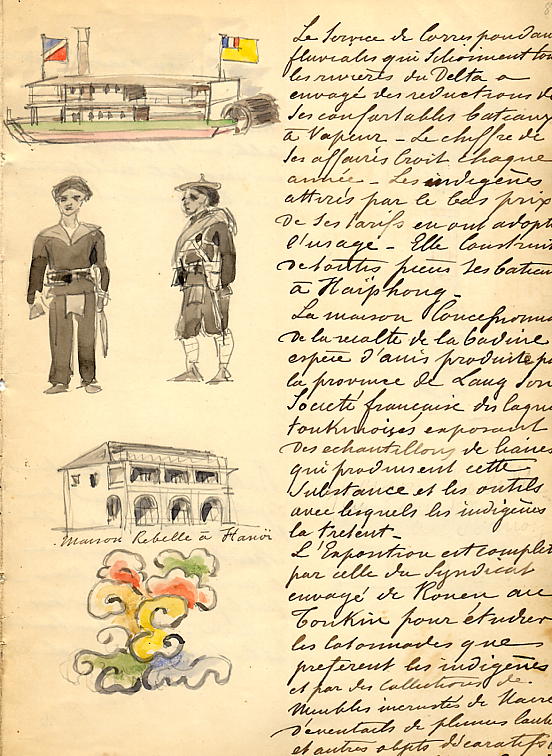 Le Service de Correspondan
fluviales qui sillonnent tou
les rivières du Delta a
envoyé des reductions de
ses confortables bateaux
à Vapeur - Le chiffre de
ses affaires croit chaque
année - Les indigènes
attirés par le bas prix
de ses tarifs en ont adopt
l'usage - Elle construi
de toutes pièces ses bateau
à Haïphong -
La maison Concessionna
de la recolte de la badiane
espèce d'anis produite pa
la province de Lang Son
Societé française des laque
tonkinoises exposent
des echantillons de lianes
qui produisent cette
substance et les outils
avec lesquels les indigènes
la
L'Exposition est complét
par celle du Syndicat
envoyé de Rouen au
Tonkin pour étudier
les cotonnades que
preferent les indigènes
et par des collections de
Meubles incrustés de Nacre
d'eventails de plumes
et autres objets décoratifs
Maison Rebelle à Hanoï